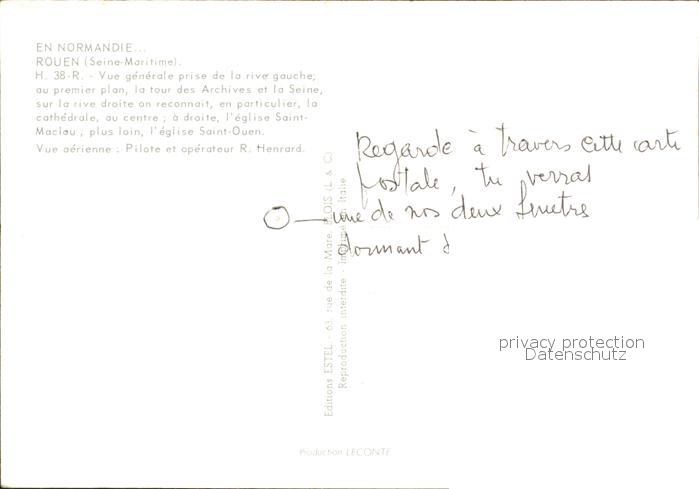 EN NORMANDIE...
ROUEN (Seine-Maritime).
H. 38-R. - Vue générale prise de la rive gauche;
au premier plan, la tour des Archives et la Seine,
sur la rive droite on reconnait, en particulier, la
cathédrale, au centre ; à droite, l'église Saint-
Maclou ; plus loin, l'église Saint-Ouen.
Vue aérienne : Pilote et opérateur R. Henrard.
Regarde à travers cette carte
postale, tu verras
une de nos deux fenetres
dormant
Editions ESTEL - 63, rue de la Mare, BLOIS (L. & C)
Reproduction interdite - Imprimé en Italie
privacy protection
Datenschutz
Production LECONTE